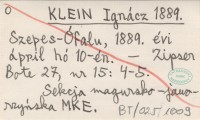 KLEIN Ignácz 1889.
Szepes-Ófalu, 1889. évi
április hó 10-én. — Zipser
Bote 27, nr 15: 4-5.
Sekcja magursko-jawo-
rzyńska MKE.
BT/025.1009